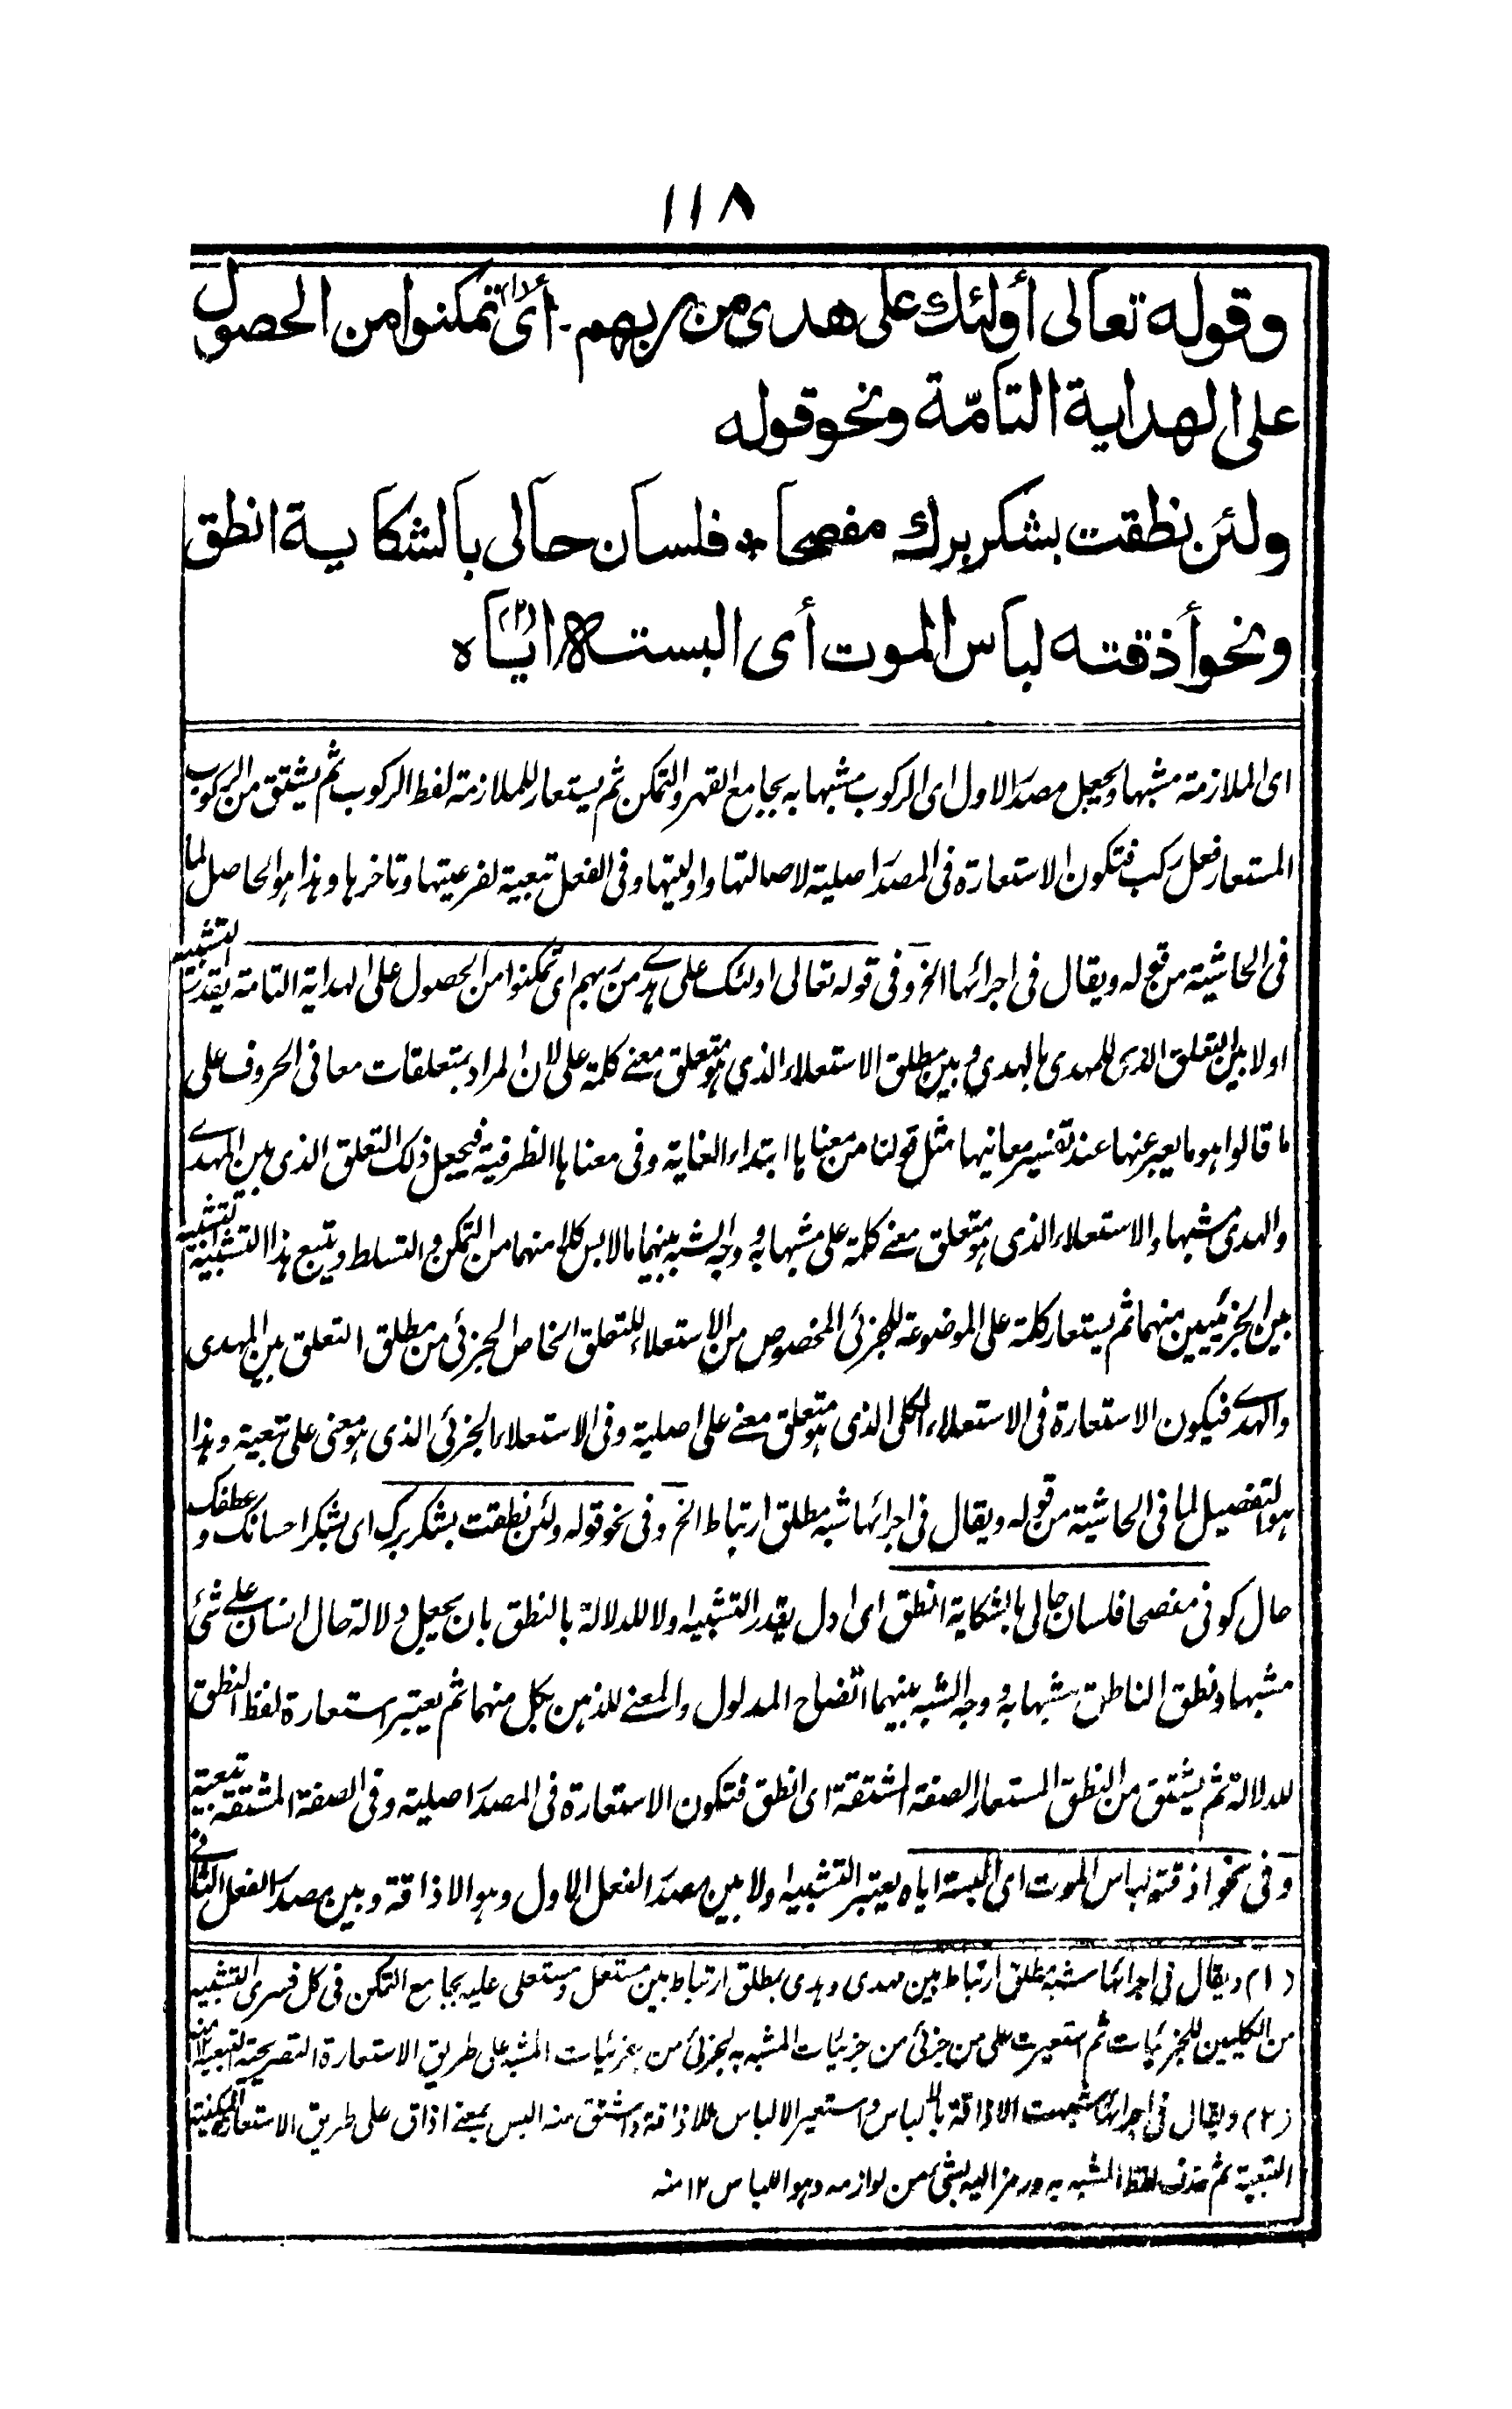 ١١٨
وقوله تعالى أولئك على هدى من ربهم - أى (١) تمكنوا من الحصول
على الهداية التامّة ونحو قوله
ولئن نطقت بشكر برك مفصحا * فلسان حالى بالشكاية انطق
ونحو أذقته لباس الموت أى البسته (٢) اياه
اى الملازمة مشبها ويجعل مصدر الاول اى الركوب مشبها به بجامع القهر والتمكن ثم يستعار للملازمة لفظ الركوب ثم يشتق من الركوب
المستعار فعل ركب فتكون الاستعارة فى المصدر اصلية لاصالتها واوليتها وفى الفعل تبعية لفرعيتها وتاخرها وهذا هو الحاصل لما
فى الحاشية من قوله ويقال فى اجرائها الخ وفى قوله تعالى اولئك على هدى من ربهم اى تمكنوا من الحصول على الهداية التامة يقدر التشبيه
اولا بين التعلق الذى للمهدى بالهدى وبين مطلق الاستعلاء الذى هو متعلق معنے كلمة على لان المراد بمتعلقات معانى الحروف على
ما قالوا هو ما يعبر عنها عند تفسير معانيها مثل قولنا من معناها ابتداء الغاية وفى معناها الظرفية فيجعل ذلك التعلق الذى بين المهدے
والهدى مشبها والاستعلاء الذى هو متعلق معنے كلمة على مشبها به ووجه الشبه بينهما ما لابس كلا منهما من التمكن والتسلط ويتبع هذا التشبيه التشبيه
بين الجزئيين منهما ثم يستعار كلمة على الموضوعة للجزئى المخصوص من الاستعلاء للتعلق الخاص الجزئى من مطلق التعلق بين المهدى
والهدے فيكون الاستعارة فى الاستعلاء الكلى الذى هو متعلق معنے على اصلية وفى الاستعلاء الجزئى الذى هو معنى على تبعية وهذا
هو التفصيل لما فى الحاشية من قوله ويقال فى اجرائها شبه مطلق ارتباط الخ وفى نحو قوله ولئن نطقت بشكر برك اى بشكر احسانك وعطفك
حال كونى مفصحا فلسان حالى بالشكاية انطق اى ادل يقدر التشبيه اولا للدلالة بالنطق بان يجعل دلالة حال انسان علے شئ
مشبها ونطق الناطق مشبها به ووجه الشبه بينهما اتضاح المدلول والمعنے للذهن بكل منهما ثم يعتبر استعارة لفظ النطق
للدلالة ثم يشتق من النطق المستعار الصفة المشتقة اى انطق فتكون الاستعارة فى المصدر اصلية وفى الصفة المشتقة تبعية
وفى نحو اذقته لباس الموت اى البسته اياه يعتبر التشبيه اولا بين مصدر الفعل الاول وهو الاذاقة وبين مصدر الفعل الثانے
(١) ويقال فى اجرائها شبه مطلق ارتباط بين مهدى وهدى بمطلق ارتباط بين مستعل ومستعلى عليه بجامع التمكن فى كل فسرى التشبيه
من الكليين للجزئيات ثم استعيرت على من جزئى من جزئيات المشبه به لجزئى من جزئيات المشبه على طريق الاستعارة التصريحية التبعية ١٢ منه
(٢) ويقال فى اجرائها شبهت الاذاقة بالالباس واستعير الالباس للاذاقة واشتق منه البس بمعنے اذاق على طريق الاستعارة المكنية
التبعية ثم حذف لفظ المشبه به ورمز اليه بشئ من لوازمه وهو اللباس ١٢ منه